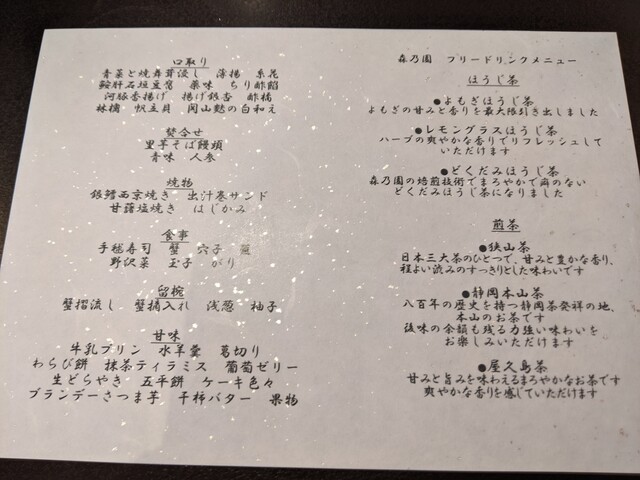 口取り
青菜と焼舞茸浸し　薄揚　糸花
鮟肝石垣豆腐　薬味　ちり酢餡
河豚香揚げ　揚げ銀杏　酢橘
林檎　帆立貝　岡山麩の白和え
焚合せ
里芋そば饅頭
青味　人参
焼物
銀鱈西京焼き　出汁巻サンド
甘藷塩焼き　はじかみ
食事
手毬寿司　蟹　穴子
野沢菜　玉子　がり
留椀
蟹摺流し　蟹摘入れ　浅葱　柚子
甘味
牛乳プリン　水羊羹　葛切り
わらび餅　抹茶ティラミス　葡萄ゼリー
生どらやき　五平餅　ケーキ色々
ブランデーさつま芋　干柿バター　果物
森乃園　フリードリンクメニュー
ほうじ茶
●よもぎほうじ茶
よもぎの甘みと香りを最大限引き出しました
●レモングラスほうじ茶
ハーブの爽やかな香りでリフレッシュして
いただけます
●どくだみほうじ茶
森乃園の焙煎技術でまろやかで癖のない
どくだみほうじ茶になりました
煎茶
●狭山茶
日本三大茶のひとつで、甘みと豊かな香り、
程よい渋みのすっきりとした味わいです
●静岡本山茶
八百年の歴史を持つ静岡茶発祥の地、
本山のお茶です
後味の余韻も残る力強い味わいを
お楽しみいただけます
●屋久島茶
甘みと旨みを味わえるまろやかなお茶です
爽やかな香りを感じていただけます